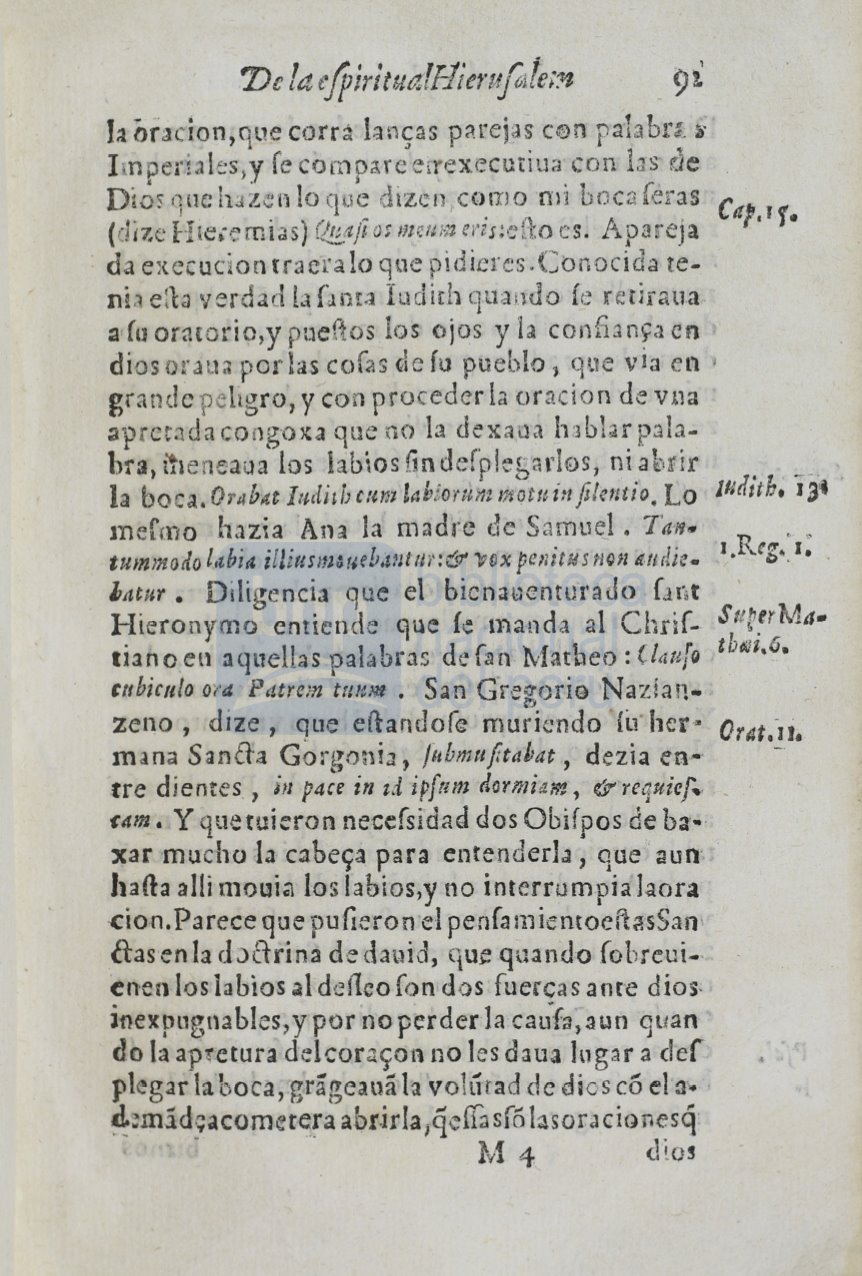 De la eſpiritual Hieruſalem 92
la ōracion, que corra lanças parejas con palabras
Imperiales, y ſe compare en executiua con las de
Dios que hazen lo que dizen, como mi boca ſeras
(dize Hieremias) Quaſi os meum eris: eſto es. Apareja
Cap. 15.
da execucion traera lo que pidieres. Conocida te-
nia eſta verdad la ſanta Iudith quando ſe retiraua
a ſu oratorio, y pueſtos los ojos y la confiança en
dios oraua por las coſas de ſu pueblo, que via en
grande peligro, y con proceder la oracion de vna
apretada congoxa que no la dexaua hablar pala-
bra, meneaua los labios ſin deſplegarlos, ni abrir
la boca. Orabat Iudith cum labiorum motu in ſilentio. Lo
Iudith. 13.
meſmo hazia Ana la madre de Samuel. Tan-
tummodo labia illius mouebantur: & vox penitus non audie-
1. Reg. 1.
batur. Diligencia que el bienauenturado ſant
Hieronymo entiende que ſe manda al Chriſ-
Super Ma-
tiano en aquellas palabras de ſan Matheo: Clauſo
thæi. 6.
cubiculo ora Patrem tuum. San Gregorio Nazian-
zeno, dize, que eſtandoſe muriendo ſu her-
Orat. 11.
mana Sancta Gorgonia, ſubmuſitabat, dezia en-
tre dientes, in pace in id ipſum dormiam, & requieſ-
cam. Y que tuieron neceſsidad dos Obiſpos de ba-
xar mucho la cabeça para entenderla, que aun
haſta alli mouia los labios, y no interrumpia la ora
cion. Parece que puſieron el penſamiento eſtas San
ctas en la doctrina de dauid, que quando ſobreui-
enen los labios al deſſeo ſon dos fuerças ante dios
inexpugnables, y por no perder la cauſa, aun quan
do la apretura del coraçon no les daua lugar a deſ
plegar la boca, grãgeauã la volũtad de dios cõ el a-
demãd̄ acometer a abrirla, q̃ eſſas ſõ las oraciones q̃
M 4 dios